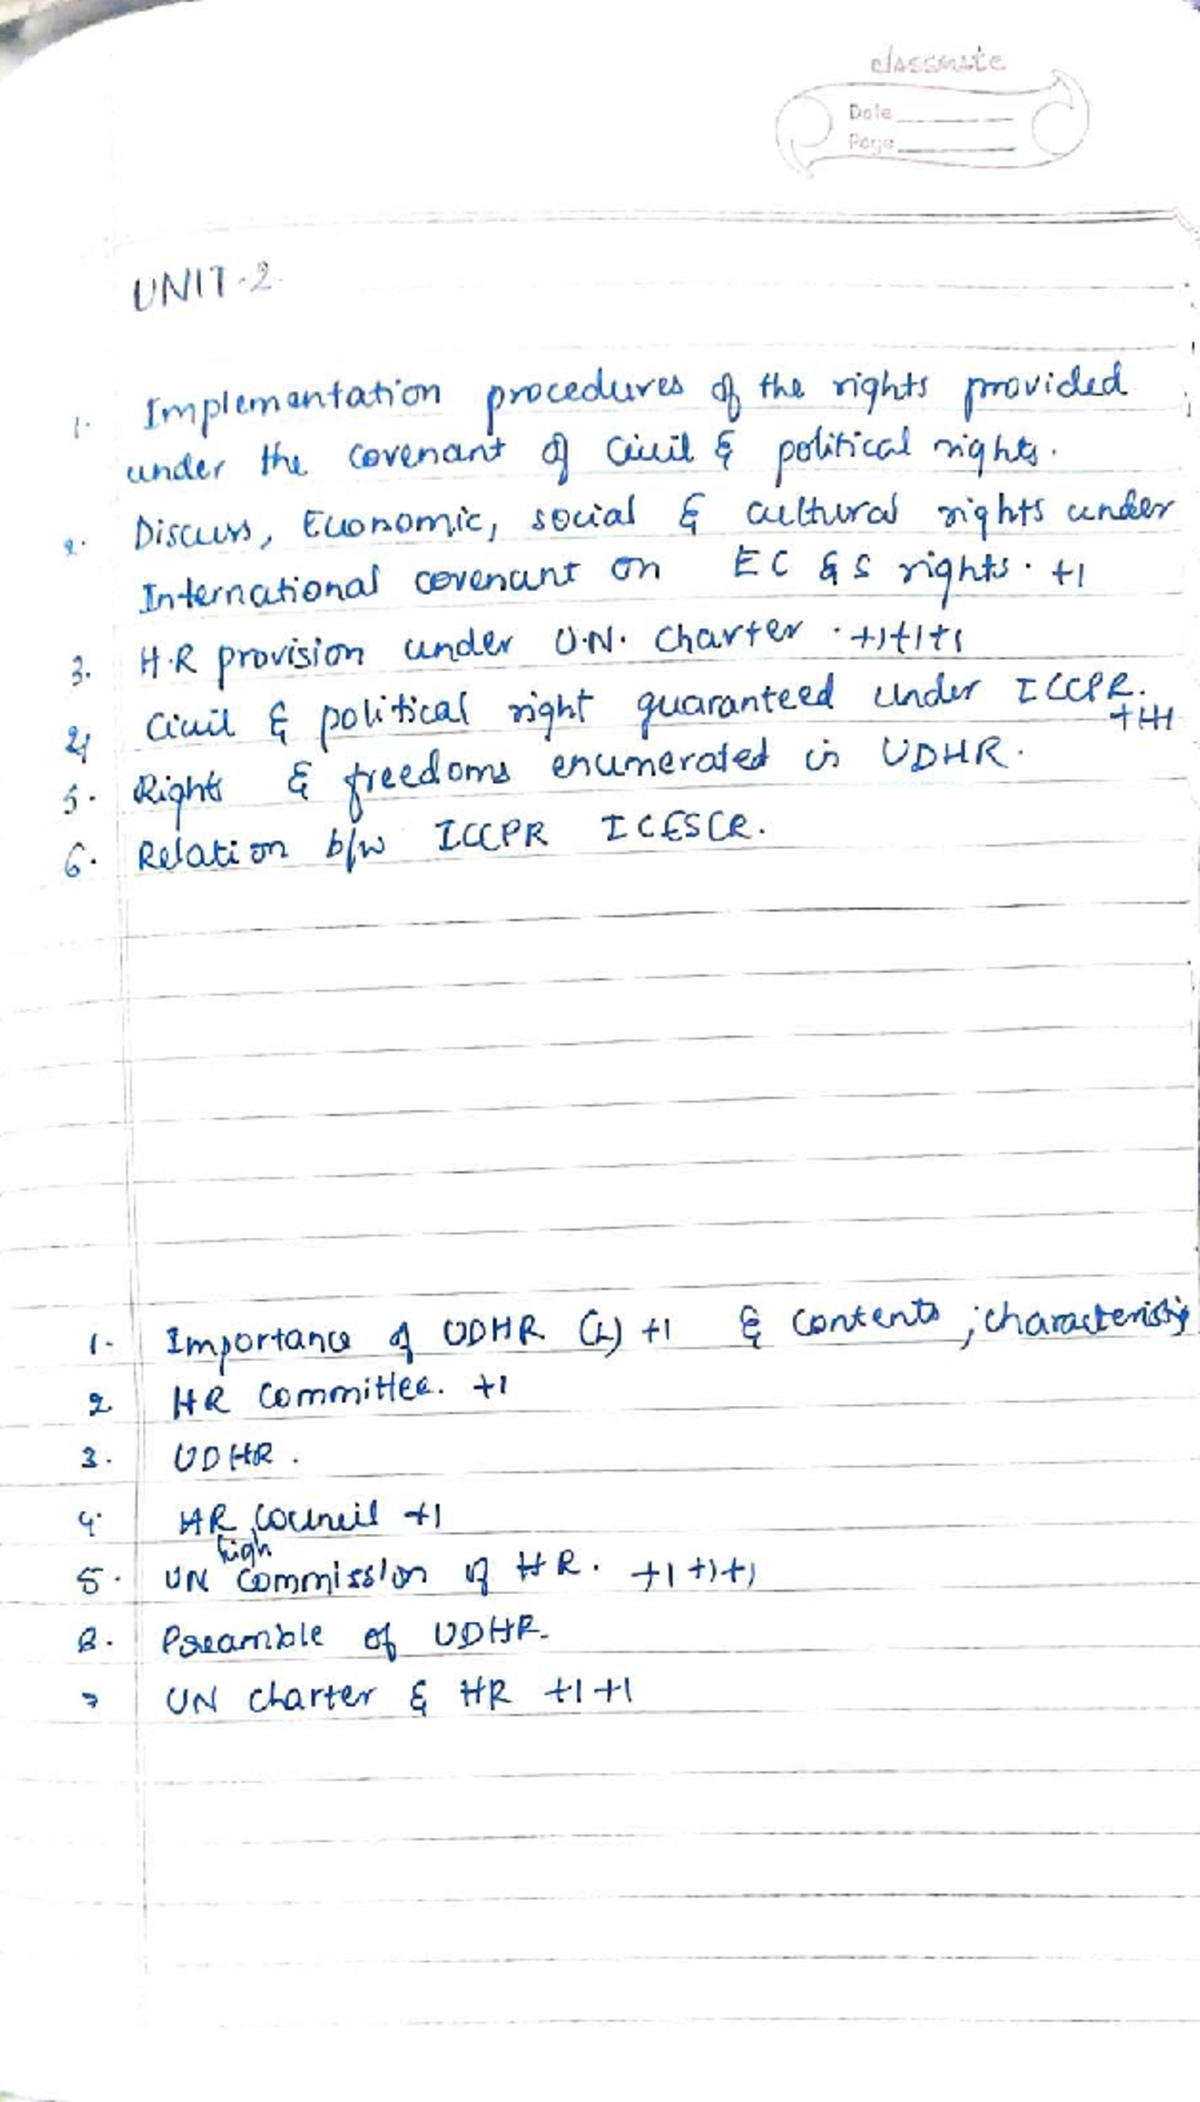 classmate
Date
Page
UNIT-2
1. Implementation procedures of the rights provided
under the covenant of Civil & political rights.
2. Discuss, Economic, social & cultural rights under
International covenant on EC & S rights. +1
3. H.R provision under U.N. Charter. +1+1+1
4 Civil & political right guaranteed under ICCPR.
5. Rights & freedoms enumerated in UDHR.
6. Relation b/w ICCPR ICESCR.
1. Importance of UDHR (L) +1 & contents ; characteristic
2 HR Committee. +1
3. UDHR.
4. HR Council +1
high
5. UN Commission of HR. +1+1+1
Preamble of UDHR.
7 UN charter & HR +1+1